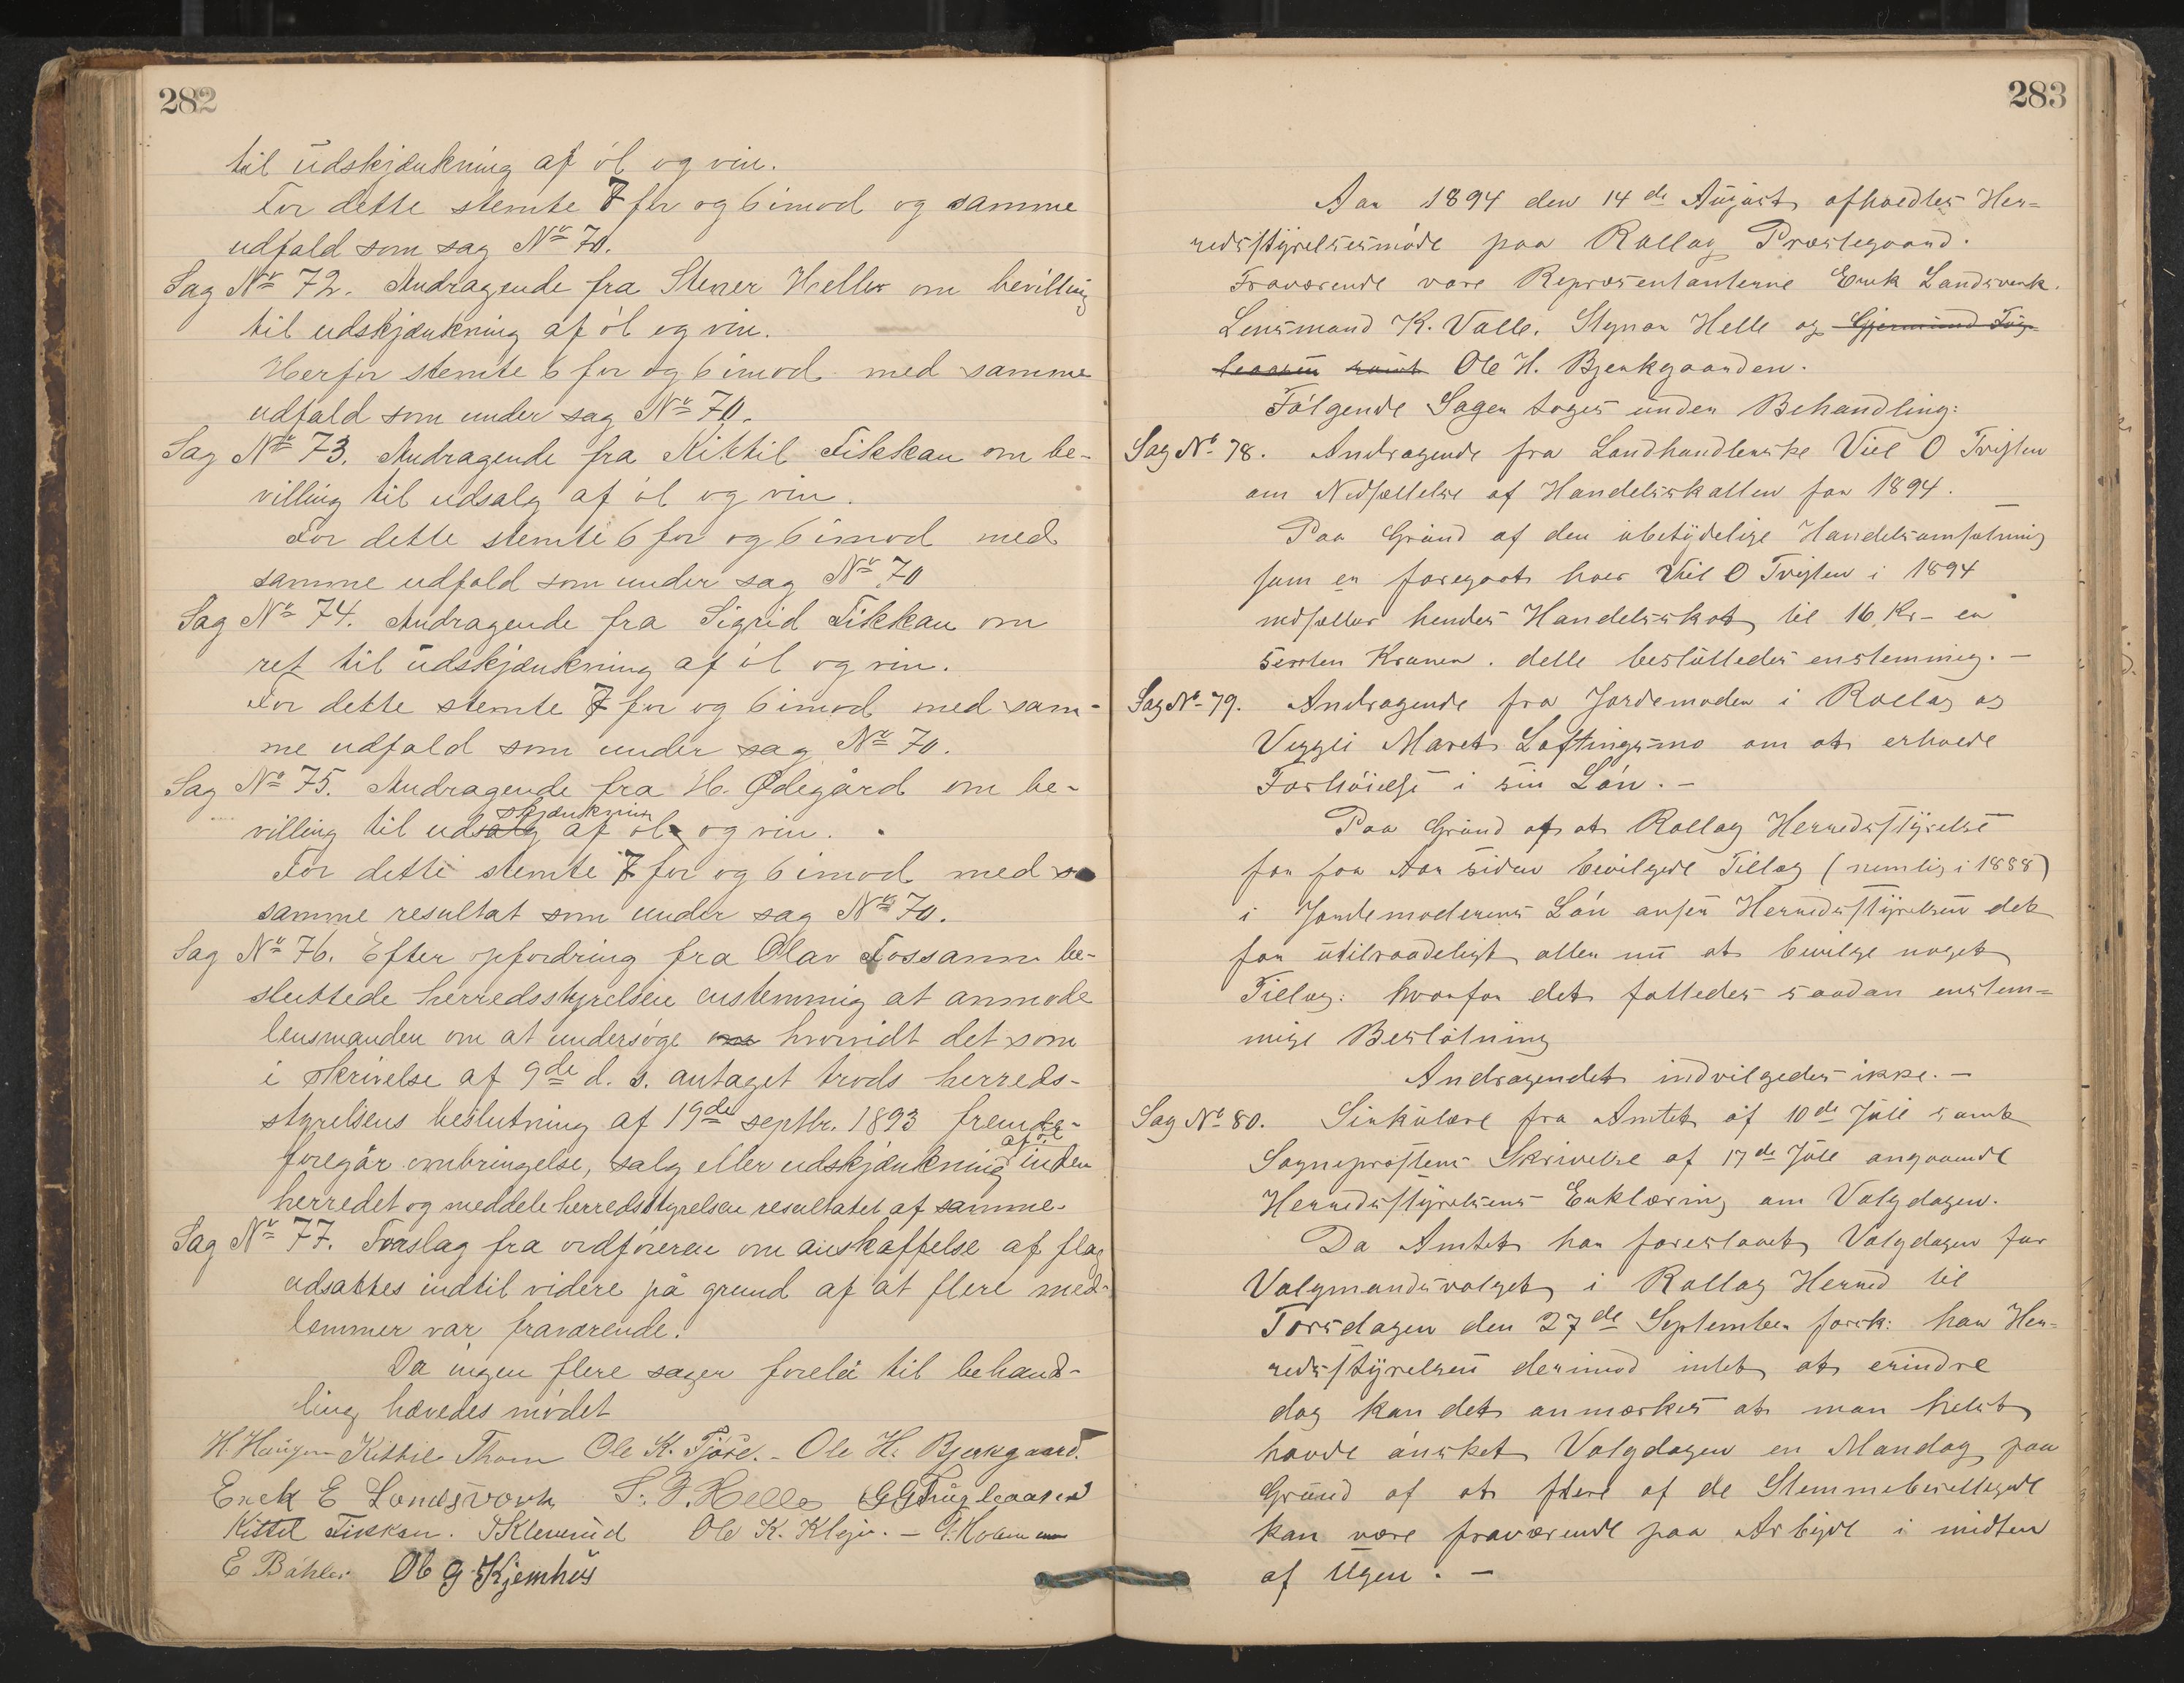 282
til udskjænkning af öl og vin.
For dette stemte 7 for og 6 imod og samme
udfald som sag No 70.
Sag No 72. Andragende fra Stener Helle om bevilling
til udskjænkning af öl og vin.
Herfor stemte 6 for og 6 imod med samme
udfald som under sag No 70.
Sag No 73. Andragende fra Kittil Fikkan om be-
villing til udsalg af öl og vin.
For dette stemte 6 for og 6 imod med
samme udfald som under sag No 70
Sag No 74. Andragende fra Sigrid Fikkan om
ret til udskjænkning af öl og vin.
For dette stemte 7 for og 6 imod med sam-
me udfald som under sag No 70.
Sag No 75. Andragende fra H. Ødegård om be-
skjænkning
villing til udsalg af öl og vin.
For dette stemte 7 for og 6 imod med
samme resultat som under sag No 70.
Sag No 76. Efter opfordring fra Olav Fossann be-
sluttede herredsstyrelsen enstemmig at anmode
lensmanden om at undersøge hvorvidt det som
i skrivelse af 9de d. s. antaget trods herreds-
styrelsens beslutning af 19de septbr. 1893 fremde-
af öl
foregår ombringelse, salg eller udskjænkning inden
herredet og meddele herredsstyrelsen resultatet af samme.
Sag No 77. Forslag fra ordføreren om anskaffelse af flag
udsattes indtil videre på grund af at flere med-
lemmer var fraværende.
Da ingen flere sager forelå til behand-
ling, hævedes mödet
Kittil Thom Ole K. Fjöse. - Ole H. Bjerkgaard.
Erek E Landsverk S. J. Helle
Kittil Fikkan. Kleverud Ole K. Kleju. -
E Bähler Ole G. Kjemhus
283
Aar 1894 den 14de August afholdtes Her-
redsstyrelsesmöde paa Rollag Præstegaard.
Fraværende vare Repræsentanterne Erek Landsverk.
Lensmand K. Valle. Stener Helle og Gjermund Trug-
leasen samt Ole H. Bjerkgaarden.
Fölgende Sager toges under Behandling:
Sag No 78. Andragende fra Landhandlerske Viel O Tvisten
om Nedsættelse af Handelsskatten for 1894.
Paa Grund af den ubetydelige Handelsomsætning
som er foregaat hos Viel O Tvisten i 1894
nedsættes hendes Handelsskat til 16 Kr - er
sexten Kroner. dette besluttedes enstemmig. -
Sag No 79. Andragende fra Jordemoder i Rollag og
Veggli Maret Loftingsmo om at erholde
Forhöielse i sin Lön. -
Paa Grund af at Rollag Herredsstyrelse
for faa Aar siden bevilgede Tillæg (nemlig i 1888)
i Jordemoderens Lön anser Herredsstyrelsen det
for utilraadeligt aller nu at bevilge noget
Tillæg: hvorfor det fattedes saadan enstem-
mige Beslutning
Andragendet indvilgedes ikke. -
Sag No 80. Sirkulære fra Amtet af 10de Juli samt
Sogneprestens Skrivelse af 17de Juli angaaende
Herredsstyrelsens Erklæring om Valgdagen.
Da Amtet har foreslaaet Valgdagen for
Valgmandsvalget i Rollag Herred til
Torsdagen den 27de September förstk: har Her-
redsstyrelsen derimod intet at erindre
dog kan det anmærkes at man helst
havde önsket Valgdagen en Mandag paa
Grund af at flere af de Stemmeberettigede
kan være fraværende paa Arbeide i midten
af Ugen. -